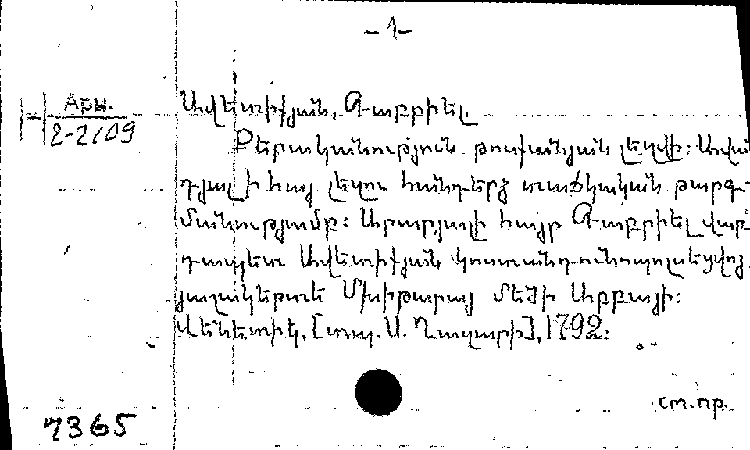 -1-
Арм.
2-2109
Ավետիքյան, Գաբրիել
Քերականություն թոսխանյան լեզվի: Ավան
դյալ ի հայ լեզու հանդերձ տաճկական թարգ-
մանությամբ: Արարյալի հայր Գաբրիել վար
դապետ Ավետիքյան կոստանդունուպոլսեցվոյ,
յաշակերտե Մխիթարայ մեծի Աբբայի:
Վենետիկ, [տպ. Ս. Ղազարի], 1792:
ст.пр.
7365